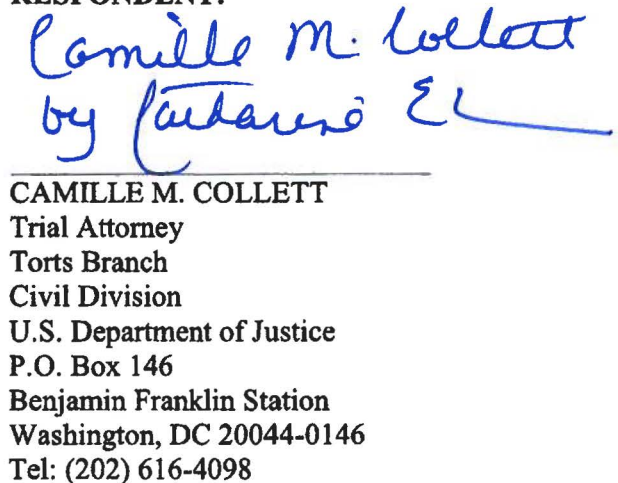 RESPONDENT:
Camille M. Collett
by
CAMILLE M. COLLETT
Trial Attorney
Torts Branch
Civil Division
U.S. Department of Justice
P.O. Box 146
Benjamin Franklin Station
Washington, DC 20044-0146
Tel: (202) 616-4098